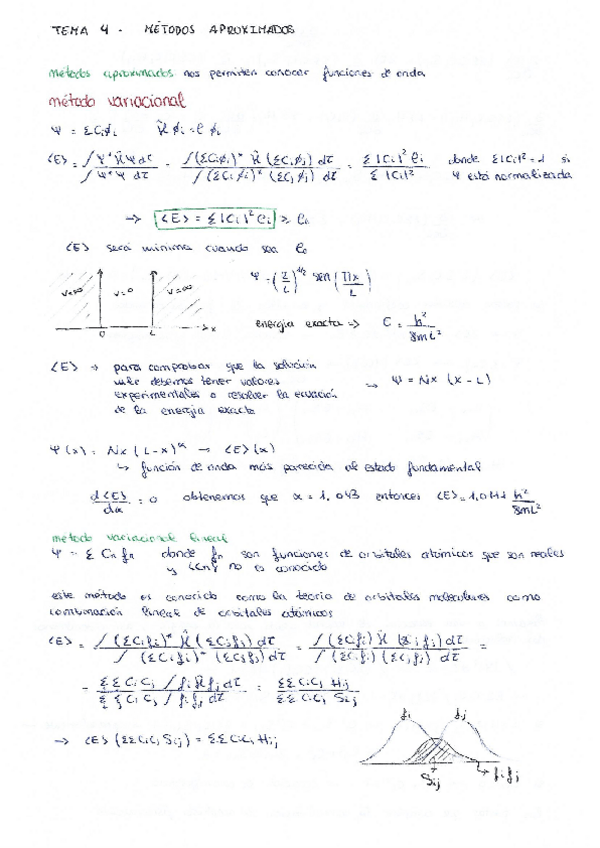 TEMA 4 - MÉTODOS APROXIMADOS
métodos aproximados nos permiten conocer funciones de onda
método variacional
Ψ = ΣCiϕi    Ĥϕi = eϕi
<E> = ∫Ψ*ĤΨdτ / ∫Ψ*Ψdτ = ∫(ΣCiϕi)* Ĥ (ΣCjϕj) dτ / ∫(ΣCiϕi)* (ΣCjϕj) dτ = Σ|Ci|² ei / Σ|Ci|²  donde Σ|Ci|² = 1 si
Ψ está normalizada
→ <E> = Σ|Ci|² ei ≥ e0
<E> será mínima cuando sea e0
V=∞  V=0  V=∞  Ψ = (2/L)^1/2 sen (πx/L)
0  L  x  energia exacta => e = h²/8mL²
<E> → para comprobar que la solución
vale debemos tener valores → Ψ = Nx (x-L)
experimentales o resolver la ecuación
de la energía exacta
Ψ(x) = Nx (L-x)^α → <E>(α)
↳ función de onda más parecida al estado fundamental
d<E>/dα = 0  obtenemos que α = 1,043 entonces <E> = h²/8mL²
método variacional lineal
Ψ = Σ Cn fn  donde fn son funciones de orbitales atómicos que son reales
y no es conocido
este método es conocido como la teoría de orbitales moleculares como
combinación lineal de orbitales atómicos
<E> = ∫(ΣCifi)* Ĥ (ΣCjfj) dτ / ∫(ΣCifi)* (ΣCjfj) dτ = ∫(ΣCifi) Ĥ (ΣCjfj) dτ / ∫(ΣCifi) (ΣCjfj) dτ =
= ΣΣCiCj ∫fiĤfj dτ / ΣΣCiCj ∫fifj dτ = ΣΣCiCj Hij / ΣΣCiCj Sij
→ <E> (ΣΣCiCj Sij) = ΣΣCiCj Hij
fi  fj
Sij  fifj